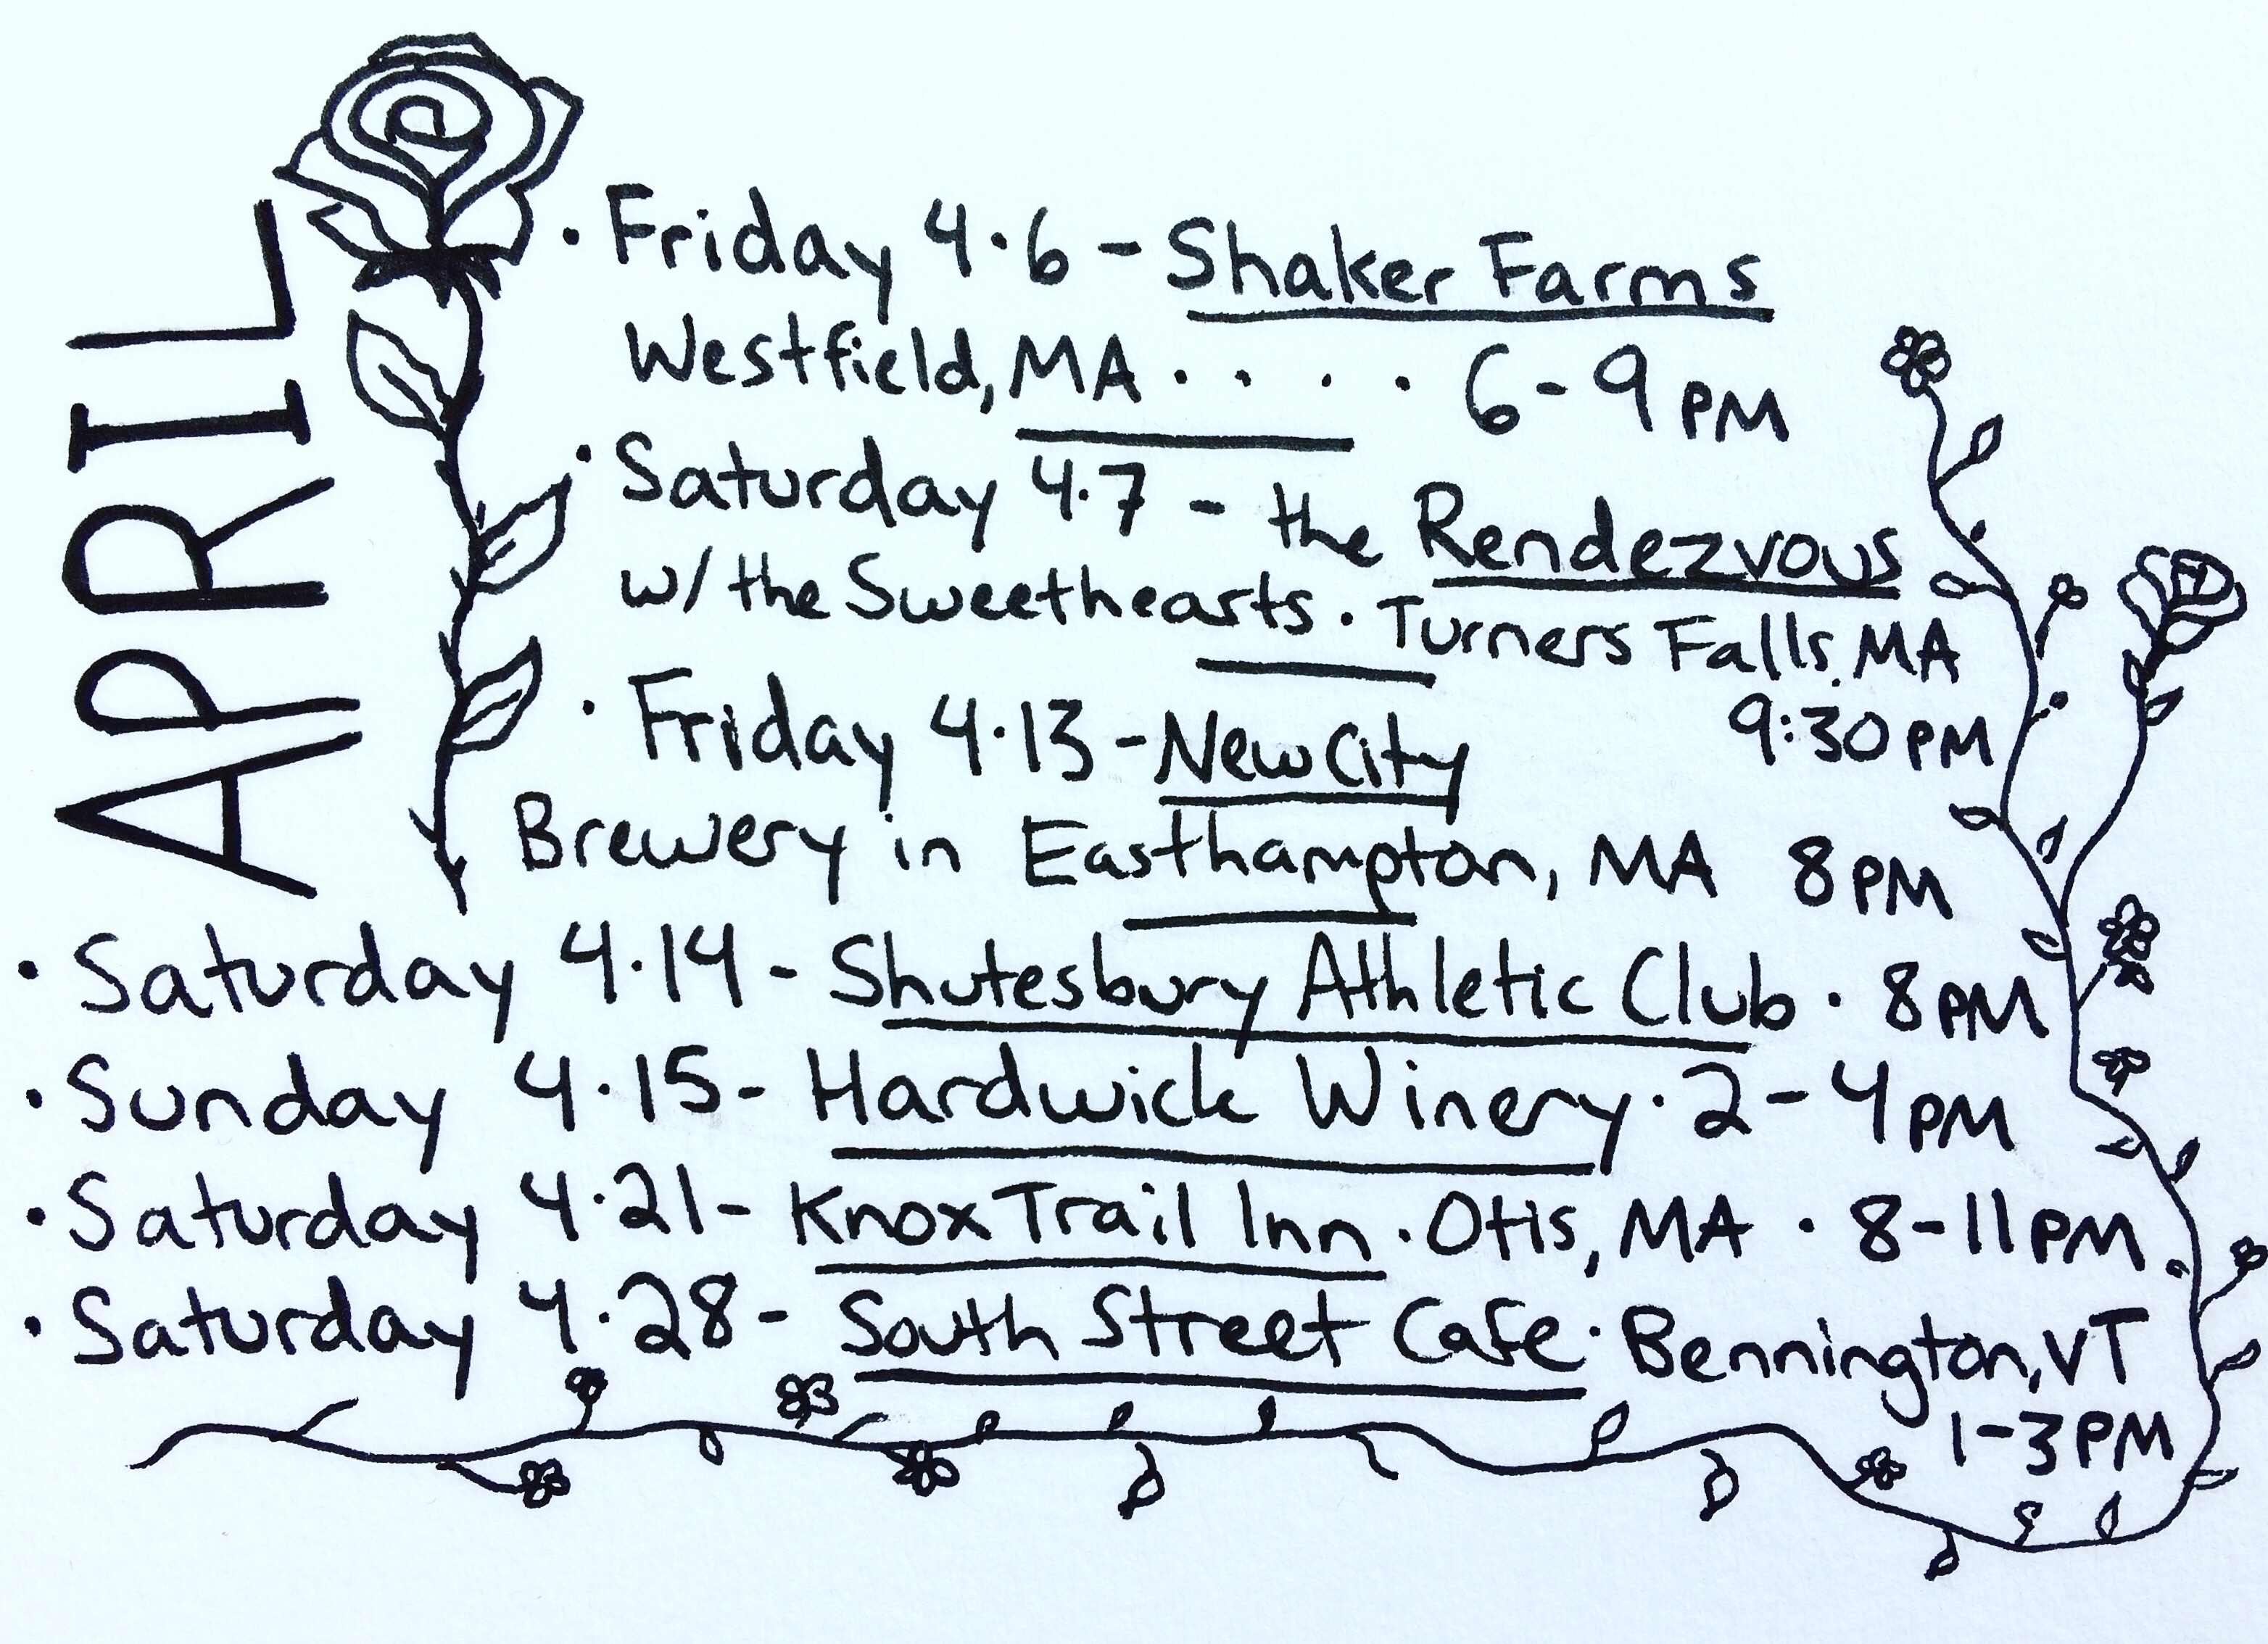 APRIL
· Friday 4·6 - Shaker Farms
Westfield, MA . . . . 6-9 PM
· Saturday 4.7 - the Rendezvous
w/ the Sweethearts · Turners Falls, MA
9:30 PM
· Friday 4·13 - New City
Brewery in Easthampton, MA 8 PM
· Saturday 4·14 - Shutesbury Athletic Club · 8 PM
· Sunday 4·15 - Hardwick Winery · 2-4 PM
· Saturday 4·21 - Knox Trail Inn · Otis, MA · 8-11 PM
· Saturday 4·28 - South Street Cafe · Bennington, VT
1-3 PM